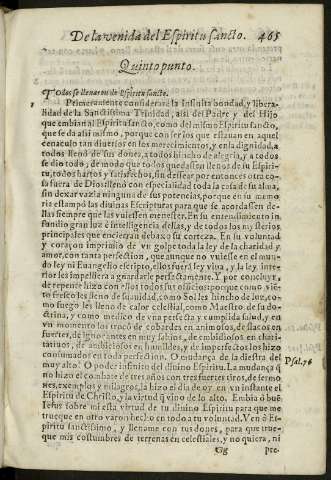 De la venida del Espiritu sancto. 465
Quinto punto.
Todos se llenaron de Espiritu sancto.
Primeramente considerarè la infinita bondad, y libera-
lidad de la Sanctissima Trinidad, assi del Padre y del Hijo
que embian al Espiritu sancto, como del mismo Espiritu sancto,
que se da assi mismo, porque con ser los que estauan en aquel
cenaculo tan diuersos en los merecimientos, y en la dignidad, a
todos llenò de sus dones, a todos hinchò de alegria, y a todos
se diò todo, de modo que todos quedassen llenos de su Espiri-
tu, todos hartos y satisfechos, sin dessear por entonces otra co-
sa fuera de Dios: llenò con especialidad toda la casa de su alma,
sin dexar vazia ninguna de sus potencias, porque en su memo
ria estampò las diuinas Escripturas para que se acordassen de-
llas siempre que las vuiessen menester. En su entendimiento in
fundio gran luz è intelligencia dellas, y de todos los myste rios
principales que encierran debaxo su corteza. En su voluntad
y coraçon imprimio de vn golpe toda la ley de la charidad y
amor, con tanta perfection, que aunque no vuiesse en el mun-
do ley ni Euangelio escripto, ellos fuerã ley viua, y la ley inte-
rior les impelliera a guardarle perfectamente. Y por concluyr,
de repente hizo con ellos todos sus officios: porque como viẽ-
to fresco les llenò de suauidad, como Sol les hinchò de luz, co-
mo fuego les llenò de calor celestial, como Maestro de sa do-
ctrina, y como medico de vna perfecta y cumplida salud, y en
vn momento los trocò de cobardes en animosos, de flacos en
fuertes, de ignorantes en muy sabios, de ambiciosos en chari-
tatiuos, de ambiciosos en humildes, y de imperfectos los hizo
consumados en toda perfection. O mudança de la diestra del
muy alto! O poder infinito del diuino Espiritu. La mudança q̃
Psal. 76
no hizo el combate de tres años con tres fuertes tiros, de sermo
nes, exemplos y milagros, la hizo el dia de oy en vn instante el
Espiritu de Christo, y la virtud q̃ vino de lo alto. Embia ò buẽ
Iesus sobre mi esta virtud de tu diuino Espiritu para que me
trueque en otro varon hecho en todo a tu voluntad. Ven ò Es-
piritu sanctissimo, y llename con tus dones, para que trueque
mis costumbres de terrenas en celestiales, y no quiera, ni
Gg pre-